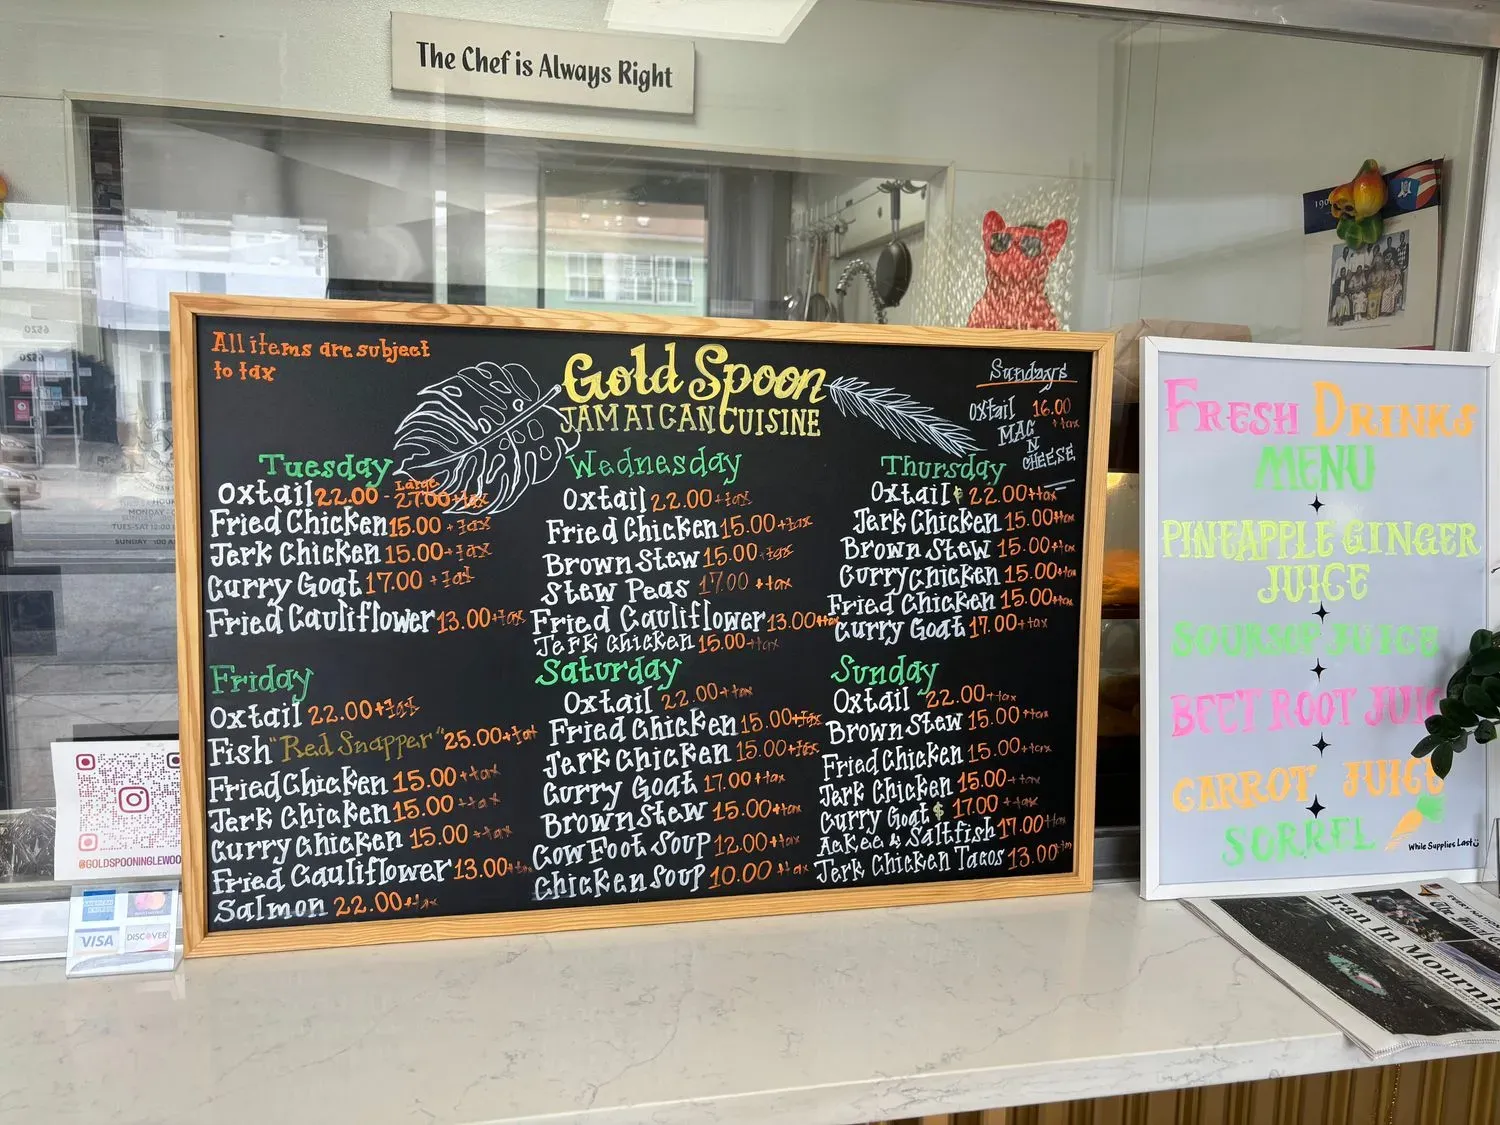 The Chef is Always Right
All items are subject
to tax
Gold Spoon
JAMAICAN CUISINE
Sundays
Oxtail 16.00
+tax
MAC
N
CHEESE
Tuesday
Large
Oxtail 22.00 - 27.00+tax
Fried Chicken 15.00 +tax
Jerk Chicken 15.00+tax
Curry Goat 17.00 +tax
Fried Cauliflower 13.00+tax
Wednesday
Oxtail 22.00+tax
Fried Chicken 15.00+tax
Brown Stew 15.00+tax
Stew Peas 17.00 +tax
Fried Cauliflower 13.00+tax
Jerk Chicken 15.00+tax
Thursday
Oxtail 22.00+tax
Jerk Chicken 15.00+tax
Brown Stew 15.00+tax
Curry Chicken 15.00+tax
Fried Chicken 15.00+tax
Curry Goat 17.00+tax
Friday
Oxtail 22.00+tax
Fish "Red Snapper" 25.00+tax
Fried Chicken 15.00+tax
Jerk Chicken 15.00+tax
Curry Chicken 15.00+tax
Fried Cauliflower 13.00+tax
Salmon 22.00+tax
Saturday
Oxtail 22.00+tax
Fried Chicken 15.00+tax
Jerk Chicken 15.00+tax
Curry Goat 17.00+tax
Brown Stew 15.00+tax
Cow Foot Soup 12.00+tax
Chicken Soup 10.00+tax
Sunday
Oxtail 22.00+tax
Brown Stew 15.00+tax
Fried Chicken 15.00+tax
Jerk Chicken 15.00+tax
Curry Goat $ 17.00 +tax
Ackee & Saltfish 17.00+tax
Jerk Chicken Tacos 13.00+tax
FRESH DRINKS
MENU
PINEAPPLE GINGER
JUICE
SOURSOP JUICE
BEET ROOT JUIC
CARROT JUICE
SORREL
While Supplies Last
@GOLDSPOONINGLEWOO
AMERICAN EXPRESS
mastercard
VISA
DISCOVER
6520
Iran In Mournin